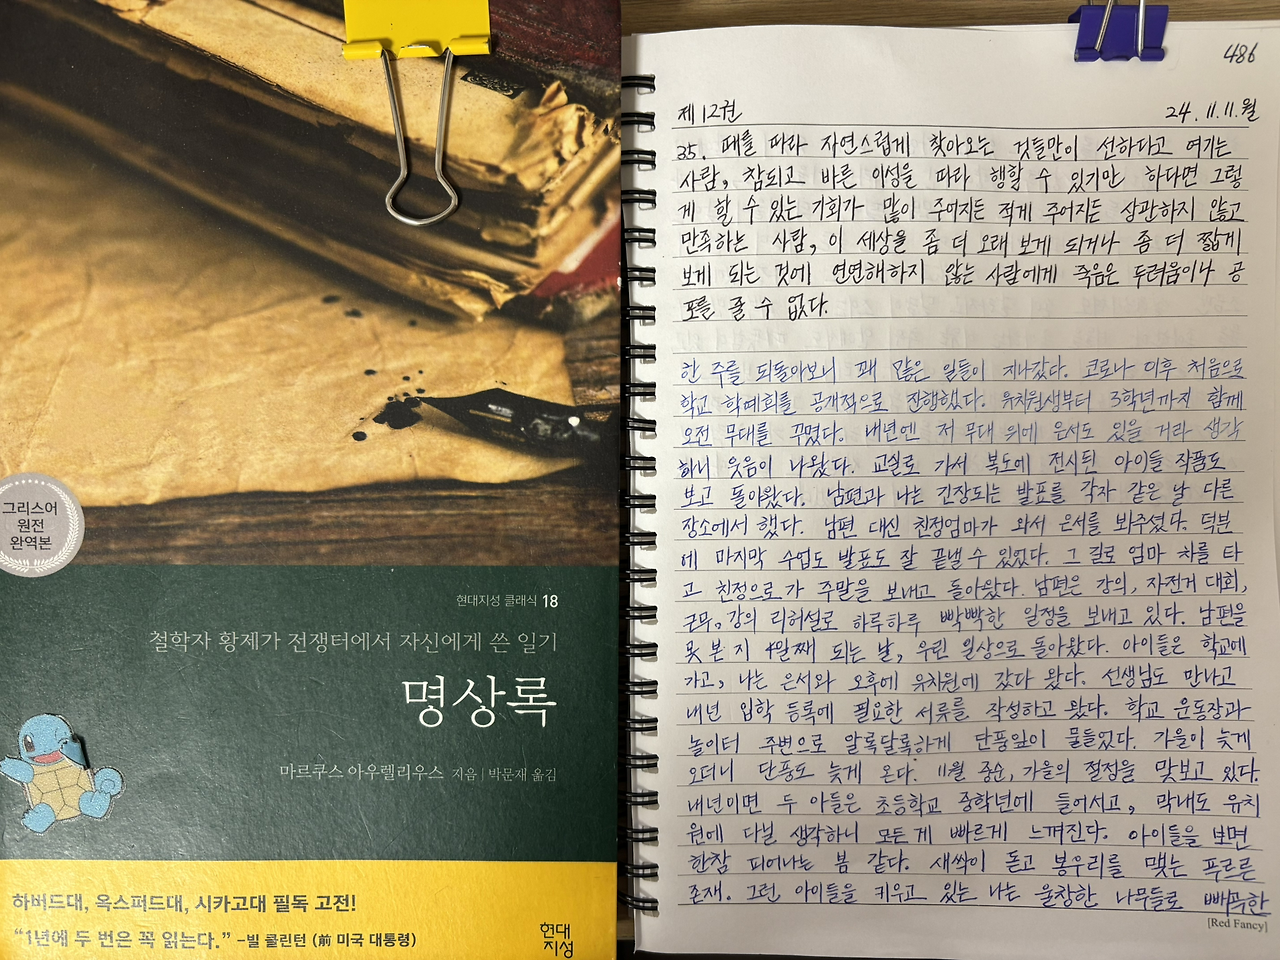 그리스어
원전
완역본
현대지성 클래식 18
철학자 황제가 전쟁터에서 자신에게 쓴 일기
명상록
마르쿠스 아우렐리우스 지음 | 박문재 옮김
하버드대, 옥스퍼드대, 시카고대 필독 고전!
“1년에 두 번은 꼭 읽는다.” -빌 클린턴 (前 미국 대통령)
현대
지성
486
제12권 24. 11. 11. 월
35. 때를 따라 자연스럽게 찾아오는 것들만이 선하다고 여기는
사람, 참되고 바른 이성을 따라 행할 수 있기만 하다면 그렇
게 할 수 있는 기회가 많이 주어지든 적게 주어지든 상관하지 않고
만족하는 사람, 이 세상을 좀 더 오래 보게 되거나 좀 더 짧게
보게 되는 것에 연연해하지 않는 사람에게 죽음은 두려움이나 공
포를 줄 수 없다.
한 주를 되돌아보니 꽤 많은 일들이 지나갔다. 코로나 이후 처음으로
학교 학예회를 공개적으로 진행했다. 유치원생부터 3학년까지 함께
오전 무대를 꾸몄다. 내년엔 저 무대 위에 은서도 있을 거라 생각
하니 웃음이 나왔다. 교실로 가서 복도에 전시된 아이들 작품도
보고 돌아왔다. 남편과 나는 긴장되는 발표를 각자 같은 날 다른
장소에서 했다. 남편 대신 친정엄마가 와서 은서를 봐주셨다. 덕분
에 마지막 수업도 발표도 잘 끝낼 수 있었다. 그 길로 엄마 차를 타
고 친정으로 가 주말을 보내고 돌아왔다. 남편은 강의, 자전거 대회,
근무, 강의 리허설로 하루하루 빡빡한 일정을 보내고 있다. 남편을
못 본 지 4일째 되는 날, 우린 일상으로 돌아왔다. 아이들은 학교에
가고, 나는 은서와 오후에 유치원에 갔다 왔다. 선생님도 만나고
내년 입학 등록에 필요한 서류를 작성하고 왔다. 학교 운동장과
놀이터 주변으로 알록달록하게 단풍잎이 물들었다. 가을이 늦게
오더니 단풍도 늦게 온다. 11월 중순, 가을의 절정을 맛보고 있다.
내년이면 두 아들은 초등학교 중학년에 들어서고, 막내도 유치
원에 다닐 생각하니 모든 게 빠르게 느껴진다. 아이들을 보면
한참 피어나는 봄 같다. 새싹이 돋고 봉우리를 맺는 푸르른
존재. 그런 아이들을 키우고 있는 나는 울창한 나무들로 빼곡한
[Red Fancy]